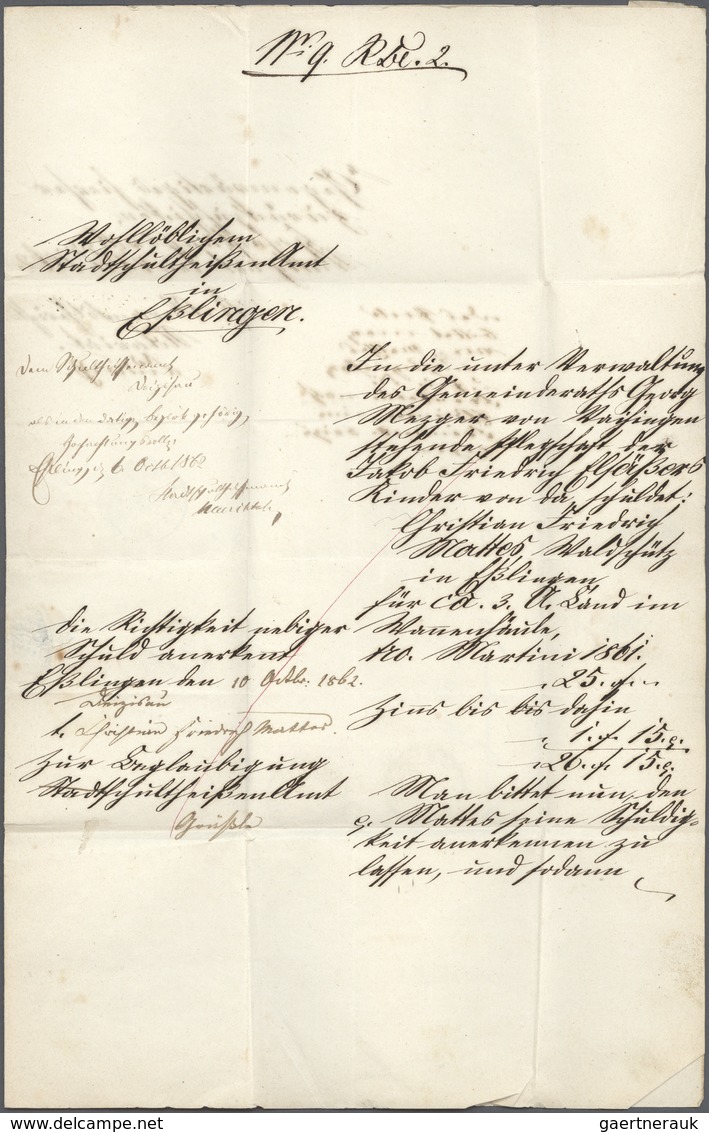 No 9. R Be. 2.
Wohllöblichem
Stadtschultheißen Amt
in
Eßlingen.
Dem Schultheissenamt
Deizisau
als in den dortigen Bezirk gehörig,
Eßlingen, 6 Octb 1862
Stadtschultheissenamt
Die Richtigkeit nebiger
Schuld anerkennt
Eßlingen den 10 Octbr. 1862.
Deizisau
t. Christian Friedrich Mattes.
Zur Beglaubigung
Stadtschultheißen Amt
In die unter Verwaltung
des Gemeinderaths Georg
Mezger von Vaihingen
stehende Pflegschaft der
Jakob Friedrich Elsäßers
Kinder von da, schuldet;
Christian Friedrich
Mattes, Waldschütz
in Eßlingen
für ca. 3. A. Land im
Wannenhäule,
ro. Martini 1861.
25. f.
Zins bis bis dahin
1. f. 15. c.
26. f. 15. c.
Man bittet nun, den
c. Mattes seine Schuldig-
keit anerkennen zu
lassen, und sodann
gaertnerauk